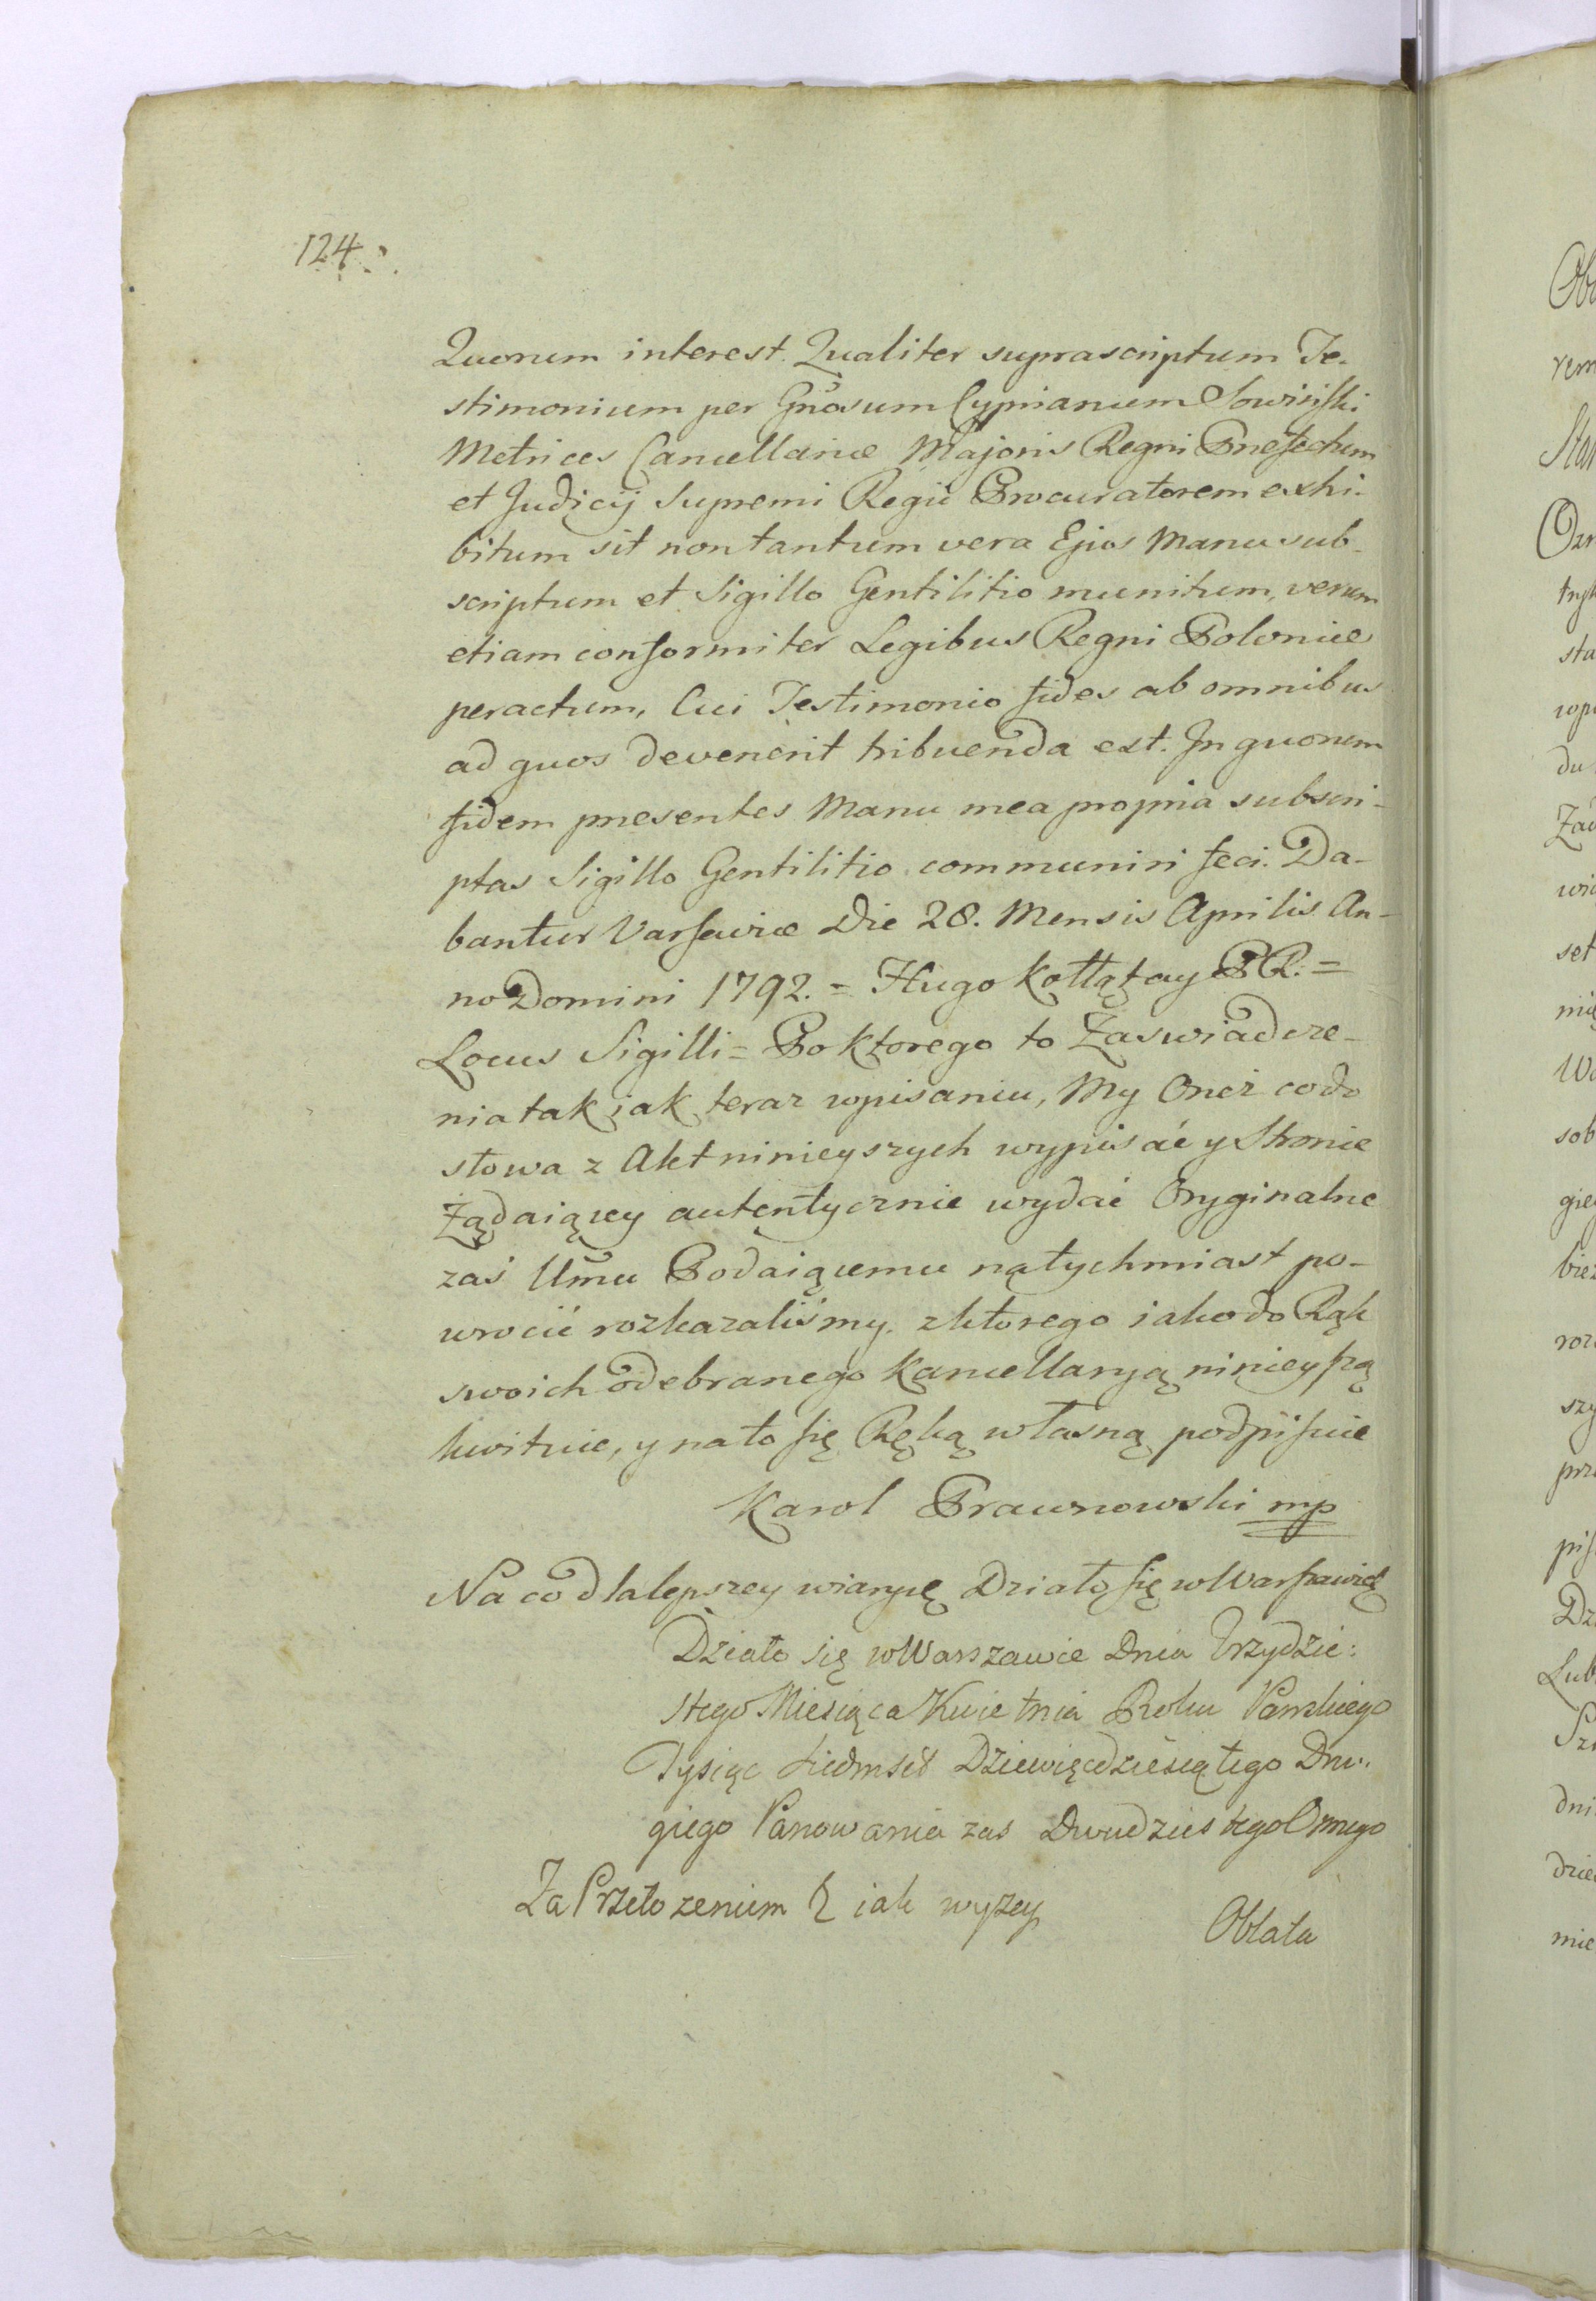 124.
Quorum interest. Qualiter suprascriptum Te-
stimonium per Gnosum Cyprianum Sowiński
Metrices Cancellariæ Majoris Regni Præfectum
et Judicij Supremi Regii Procuratorem exhi-
bitum sit non tantum vera Ejus Manu sub-
scriptum et Sigillo Gentilitio munitum, verum
etiam conformiter Legibus Regni Poloniæ
peractum, Cui Testimonio fides ab omnibus
ad quos devenerit tribuenda est. In quorum
fidem præsentes Manu mea propria subscri-
ptas Sigillo Gentilitio communiri feci. Da-
bantur Varsaviæ Die 28. Mensis Aprilis An-
no Domini 1792. = Hugo Kołłątay P R. =
Locus Sigilli = Po ktorego to Zaswiadcze-
nia tak iak teraz wpisaniu, My Oneż co do
słowa z Akt ninieyszych wypisać y Stronie
Żądaiącey autentycznie wydać Oryginalne
zaś Umu Podaiącemu natychmiast po-
wrocić rozkazaliśmy. z ktorego iako do Rąk
swoich odebranego Kancellaryą ninieyszą
kwituie, y na to się Ręką własną podpisuie
Karol Prawnowski mp
Na co dla lepszey wiaryę Działo się w Warszawie
Działo się w Warszawie Dnia Trzydzie:
stego Miesiąca Kwietnia Roku Pańskiego
Tysiąc Siedmset Dziewięcdziesiątego Dru:
giego Panowania zas Dwudziestego Osmego
Za Przełożeniem & iak wyzey
Oblata
Ob
rem
Sta
sta
du
set
sob
gie
szy
prz
Dz
Lub
dni
dzie
mie